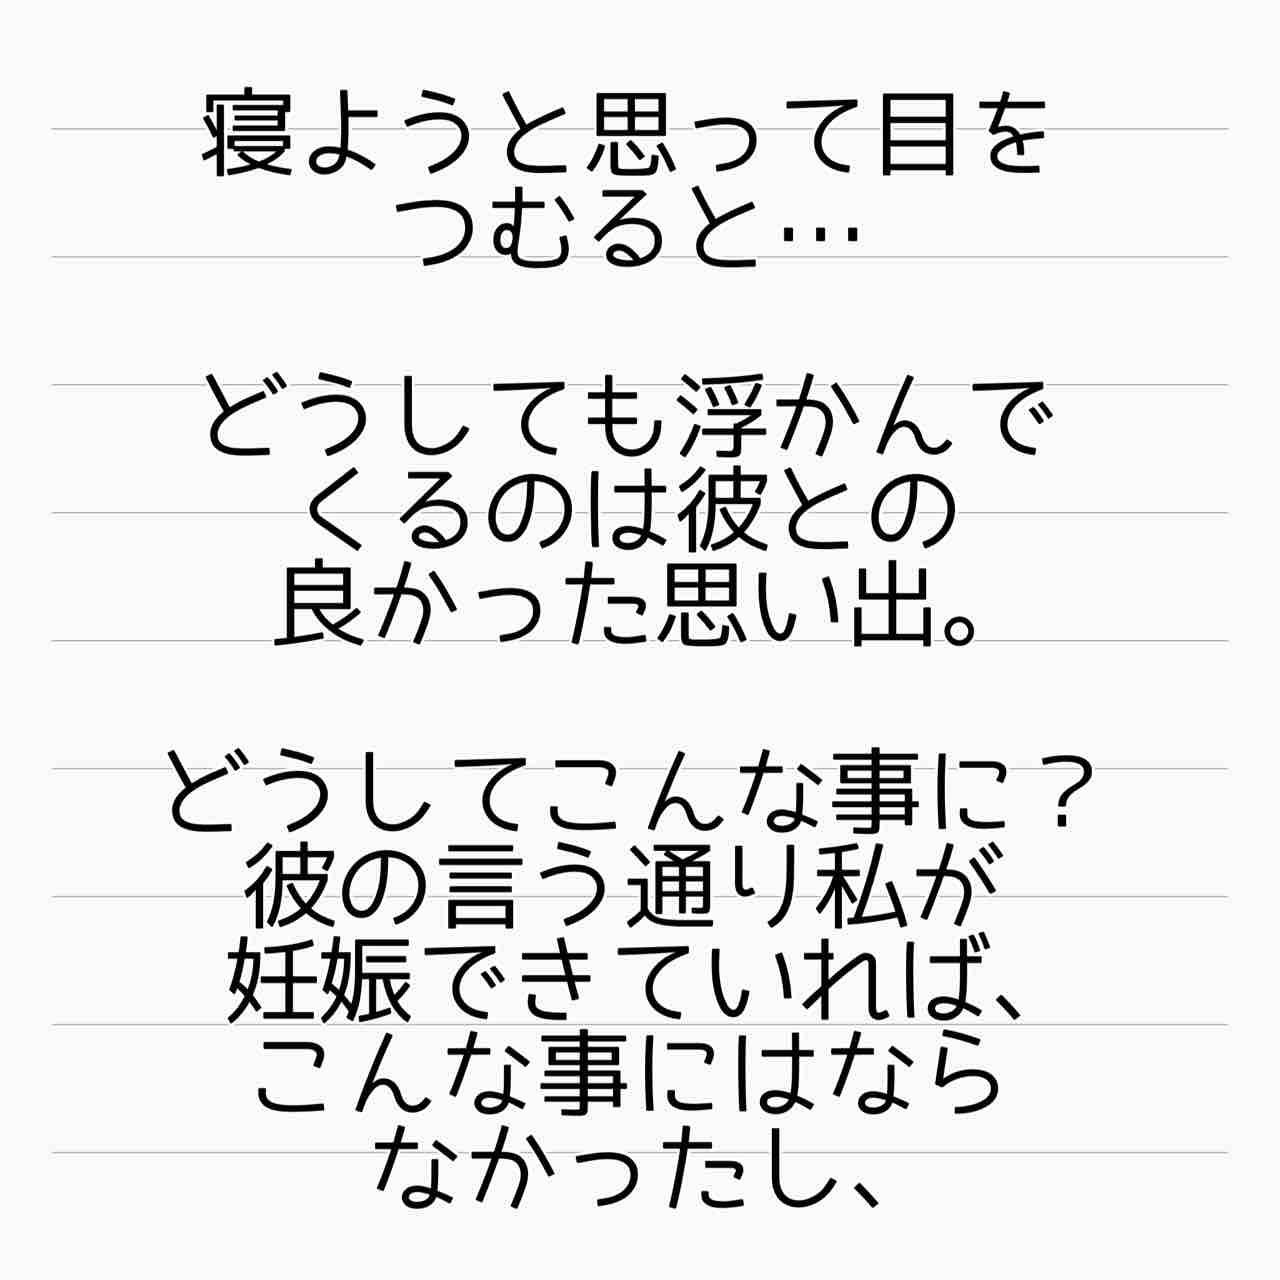 寝ようと思って目を
つむると…
どうしても浮かんで
くるのは彼との
良かった思い出。
どうしてこんな事に？
彼の言う通り私が
妊娠できていれば、
こんな事にはなら
なかったし、